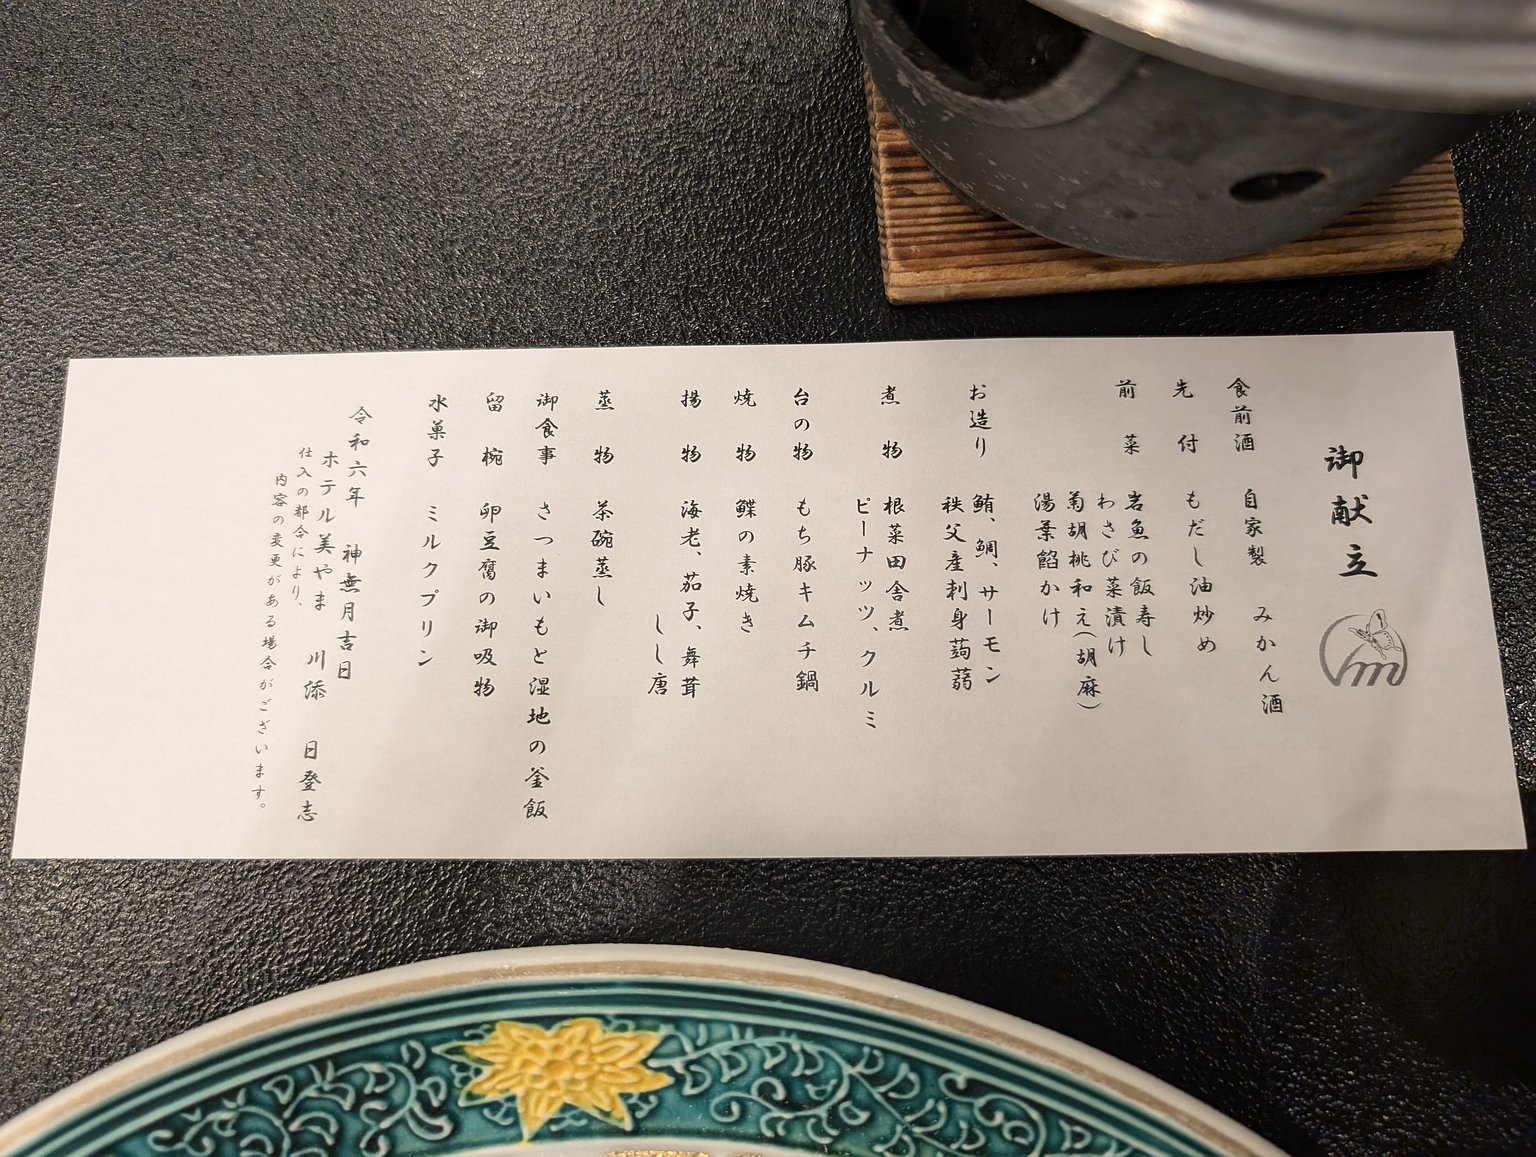 御献立
m
食前酒 自家製 みかん酒
先付 もだし油炒め
前菜 岩魚の飯寿し
わさび菜漬け
菊胡桃和え(胡麻)
湯葉餡かけ
お造り 鮪、鯛、サーモン
秩父産刺身蒟蒻
煮物 根菜田舎煮
ピーナッツ、クルミ
台の物 もち豚キムチ鍋
焼物 鰈の素焼き
揚物 海老、茄子、舞茸
しし唐
蒸物 茶碗蒸し
御食事 さつまいもと湿地の釜飯
留椀 卯豆腐の御吸物
水菓子 ミルクプリン
令和六年 神無月吉日
ホテル美やま 川添 日登志
仕入の都合により、
内容の変更がある場合がございます。